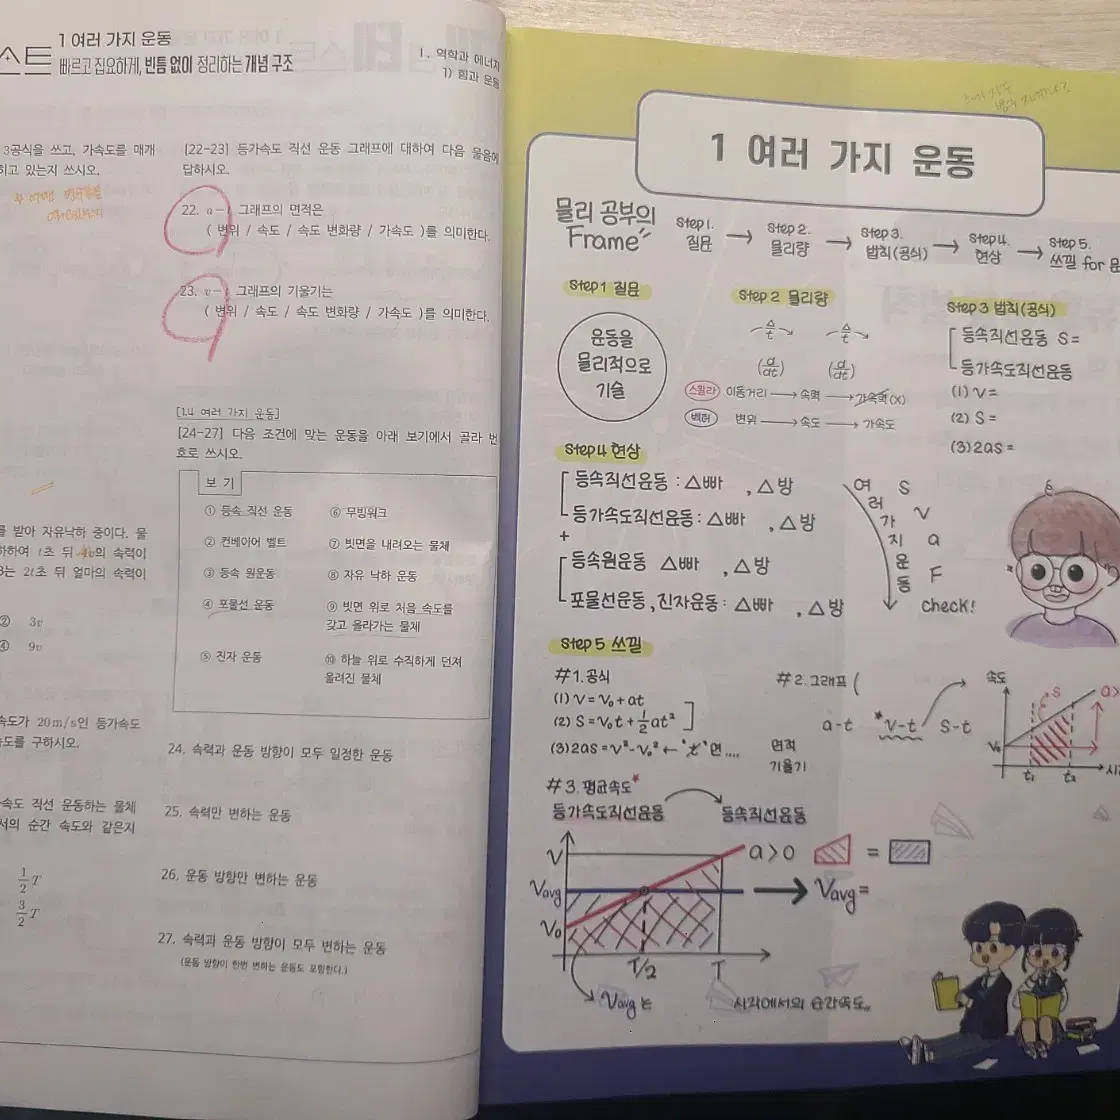 스트
1 여러 가지 운동
빠르고 집요하게, 빈틈 없이 정리하는 개념 구조
1. 역학과 에너지
1) 힘과 운동
3공식을 쓰고, 가속도를 매개
하고 있는지 쓰시오.
를 받아 자유낙하 중이다. 물
하하여 t초 뒤 의 속력이
3는 2t초 뒤 얼마의 속력이
② 3v
④ 9v
속도가 20m/s인 등가속도
속도를 구하시오.
속도 직선 운동하는 물체
서의 순간 속도와 같은지
1/2 T
3/2 T
[22-23] 등가속도 직선 운동 그래프에 대하여 다음 물음에
답하시오.
22. a-t 그래프의 면적은
( 변위 / 속도 / 속도 변화량 / 가속도 )를 의미한다.
23. v-t 그래프의 기울기는
( 변위 / 속도 / 속도 변화량 / 가속도 )를 의미한다.
[1.4 여러 가지 운동]
[24-27] 다음 조건에 맞는 운동을 아래 보기에서 골라 번
호로 쓰시오.
보 기
① 등속 직선 운동
② 컨베이어 벨트
③ 등속 원운동
④ 포물선 운동
⑤ 진자 운동
⑥ 무빙워크
⑦ 빗면을 내려오는 물체
⑧ 자유 낙하 운동
⑨ 빗면 위로 처음 속도를
갖고 올라가는 물체
⑩ 하늘 위로 수직하게 던져
올려진 물체
24. 속력과 운동 방향이 모두 일정한 운동
25. 속력만 변하는 운동
26. 운동 방향만 변하는 운동
27. 속력과 운동 방향이 모두 변하는 운동
(운동 방향이 한번 변하는 운동도 포함한다.)
1 여러 가지 운동
물리 공부의
Frame"
Step 1.
질문
→
Step 2.
물리량
→
Step 3.
법칙(공식)
→
Step 4.
현상
→
Step 5.
쓰낄 for 문
Step 1 질문
운동을
물리적으로
기술
Step 2 물리량
Δ/t Δ/t
(d/dt) (d/dt)
스칼라 이동거리 → 속력 → 가속력(X)
벡터 변위 → 속도 → 가속도
Step 3 법칙(공식)
등속직선운동 S=
등가속도직선운동
(1) V=
(2) S=
(3) 2aS=
Step 4 현상
등속직선운동 : △빠 , △방
등가속도직선운동 : △빠 , △방
+
등속원운동 △빠 , △방
포물선운동, 진자운동 : △빠 , △방
여러가지운동
S
V
a
F
check!
Step 5 쓰낄
#1. 공식
(1) V=V₀+at
(2) S=V₀t+½at²
(3) 2aS=V²-V₀² ← 't'면....
#2. 그래프 (
a-t *V-t S-t
면적
기울기
속도
S
a>
V₀
t₁ t₂
#3. 평균속도*
등가속도직선운동 등속직선운동
V
Vavg
V₀
T/2 T
a>0
=
Vavg=
Vavg는 시각에서의 순간속도..